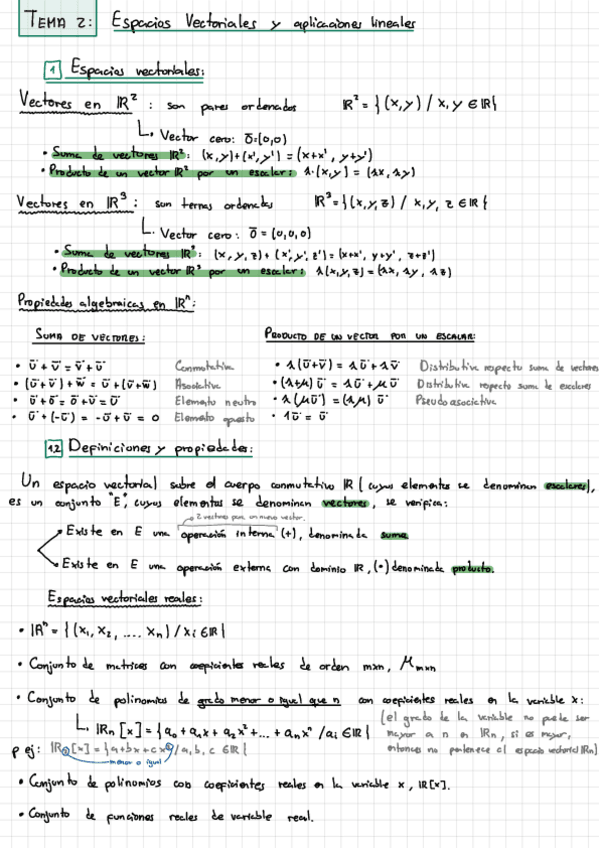 TEMA 2: Espacios Vectoriales y aplicaciones lineales
1 Espacios vectoriales:
Vectores en IR²: son pares ordenados IR² = {(x,y) / x,y ∈ IR}
↳ Vector cero: ō=(0,0)
• Suma de vectores IR²: (x,y)+(x',y') = (x+x', y+y')
• Producto de un vector IR² por un escalar: λ·(x,y) = (λx, λy)
Vectores en IR³: son ternas ordenadas IR³ = {(x,y,z) / x,y,z ∈ IR}
↳ Vector cero: ō = (0,0,0)
• Suma de vectores IR³: (x,y,z)+(x',y',z') = (x+x', y+y', z+z')
• Producto de un vector IR³ por un escalar: λ(x,y,z) = (λx, λy, λz)
Propiedades algebraicas en IRⁿ:
SUMA DE VECTORES: PRODUCTO DE UN VECTOR POR UN ESCALAR:
• ū + v̄ = v̄ + ū Conmutativa • λ(ū+v̄) = λū + λv̄ Distributiva respecto suma de vectores
• (ū+v̄) + w̄ = ū + (v̄+w̄) Asociativa • (λ+μ)ū = λū + μū Distributiva respecto suma de escalares
• ū + ō = ō + ū = ū Elemento neutro • λ(μū) = (λμ)ū Pseudoasociativa
• ū + (-ū) = -ū + ū = 0 Elemento opuesto • 1ū = ū
1.2 Definiciones y propiedades:
Un espacio vectorial sobre el cuerpo conmutativo IR (cuyos elementos se denominan escalares),
es un conjunto "E", cuyos elementos se denominan vectores, se verifica:
2 vectores para un nuevo vector.
Existe en E una operación interna (+), denominada suma
Existe en E una operación externa con dominio IR, (·) denominada producto.
Espacios vectoriales reales:
• IRⁿ = {(x₁, x₂, .... xₙ) / xᵢ ∈ IR}
• Conjunto de matrices con coeficientes reales de orden mxn, Mₘₓₙ
• Conjunto de polinomios de grado menor o igual que n con coeficientes reales en la variable x:
↳ IRₙ[x] = {a₀ + a₁x + a₂x² + ... + aₙxⁿ / aᵢ ∈ IR}
(el grado de la variable no puede ser
mayor a n en IRₙ, si es mayor,
entonces no pertenece al espacio vectorial IRₙ)
p ej: IR₂[x] = {a+bx+cx² / a, b, c ∈ IR}
menor o igual
• Conjunto de polinomios con coeficientes reales en la variable x, IR[x].
• Conjunto de funciones reales de variable real.